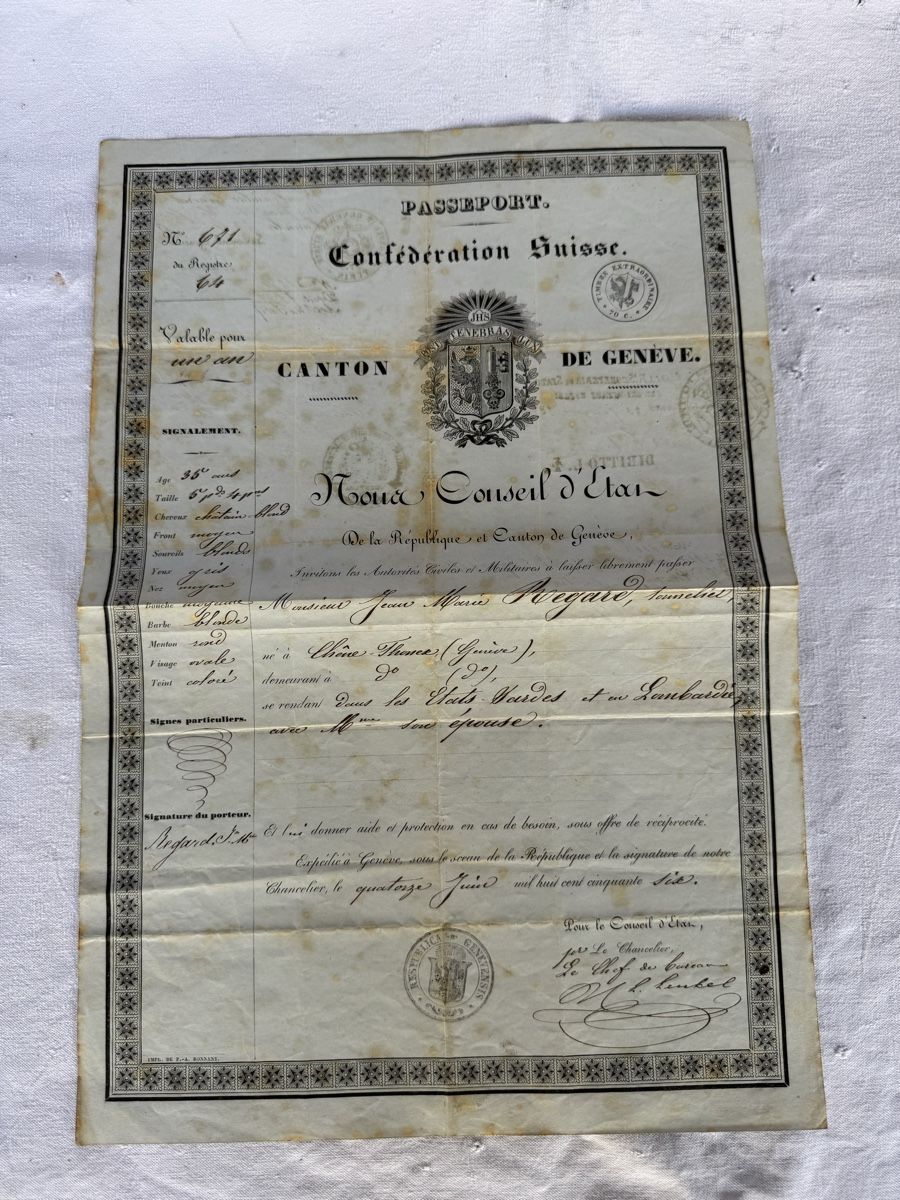 PASSEPORT.
Confédération Suisse.
TIMBRE EXTRAORDINAIRE
70 c.
JHS
POST TENEBRAS LUX
CANTON DE GENÈVE.
N° 671
du Registre
64
Valable pour
un an
SIGNALEMENT.
Age 35 ans
Taille 5 pds 4 pces
Cheveux châtain-blond
Front moyen
Sourcils blonds
Yeux gris
Nez moyen
Bouche moyenne
Barbe blonde
Menton rond
Visage ovale
Teint coloré
Signes particuliers.
Signature du porteur.
Regard, J. Mie
IMPR. DE F.-A. BONNANT.
Nous Conseil d'État
De la République et Canton de Genève,
Invitons les Autorités Civiles et Militaires à laisser librement passer
Monsieur Jean Marie Regard, tonnelier,
né à Chêne-Thonex (Genève),
demeurant à do (do),
se rendant dans les Etats-Sardes et en Lombardie,
avec Mme son épouse.
Et lui donner aide et protection en cas de besoin, sous offre de réciprocité.
Expédié à Genève, sous le sceau de la République et la signature de notre
Chancelier, le quatorze Juin mil huit cent cinquante six.
Pour le Conseil d'État,
pr Le Chancelier,
Le Chef de bureau
RESPUBLICA GENEVENSIS